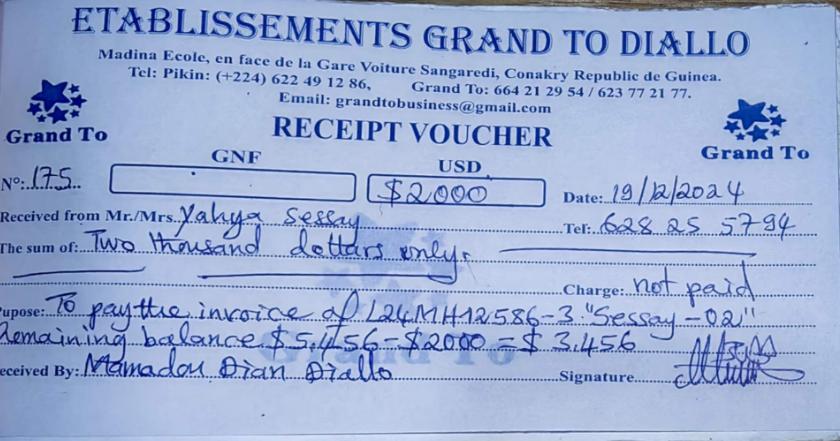 ETABLISSEMENTS GRAND TO DIALLO
Madina Ecole, en face de la Gare Voiture Sangaredi, Conakry Republic de Guinea.
Tel: Pikin: (+224) 622 49 12 86, Grand To: 664 21 29 54 / 623 77 21 77.
Email: grandtobusiness@gmail.com
Grand To RECEIPT VOUCHER Grand To
GNF USD
N°: 175 $2000 Date: 19/12/2024
Received from Mr./Mrs. Yahya Sessay Tel: 628 25 5794
The sum of: Two thousand dollars only.
Charge: not paid
upose: To pay the invoice of L24MH12586-3 "Sessay-02"
Remaining balance $5.456-$2000=$3.456
eceived By: Mamadou Dian Diallo Signature